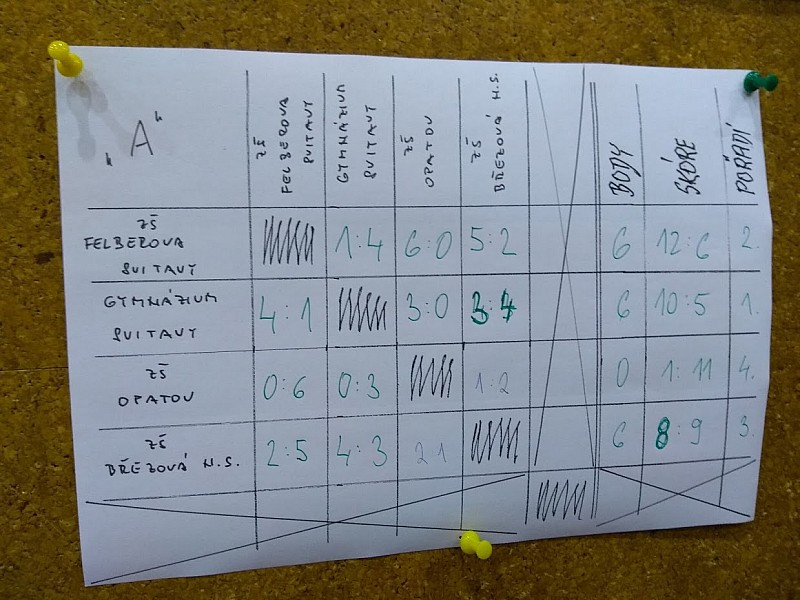 „A“
ZŠ
FELBEROVA
SVITAVY
GYMNÁZIUM
SVITAVY
ZŠ
OPATOV
ZŠ
BŘEZOVÁ N.S.
BODY
SKÓRE
POŘADÍ
ZŠ
FELBEROVA
SVITAVY
1:4 6:0 5:2 6 12:6 2.
GYMNÁZIUM
SVITAVY
4:1 3:0 3:4 6 10:5 1.
ZŠ
OPATOV
0:6 0:3 1:2 0 1:11 4.
ZŠ
BŘEZOVÁ N.S.
2:5 4:3 2 1 6 8:9 3.